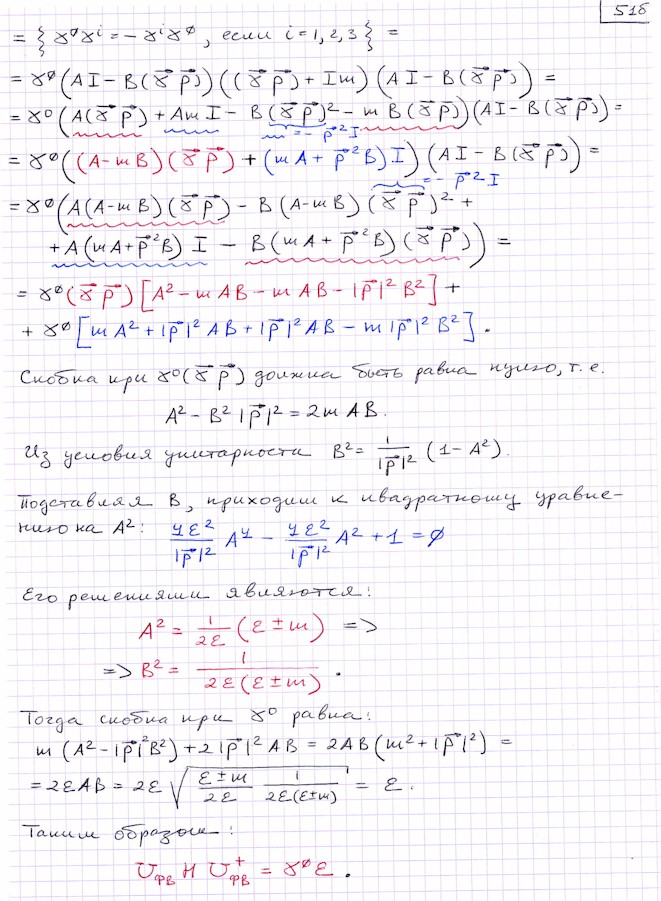 51б
= { γ⁰γⁱ = − γⁱγ⁰, если i = 1, 2, 3 } =
= γ⁰ (A I − B(γ⃗ p⃗)) ((γ⃗ p⃗) + I m) (A I − B(γ⃗ p⃗)) =
= γ⁰ (A(γ⃗ p⃗) + A m I − B(γ⃗ p⃗)² − m B(γ⃗ p⃗)) (A I − B(γ⃗ p⃗)) =
= − p⃗² I
= γ⁰ ((A − mB)(γ⃗ p⃗) + (mA + p⃗² B) I) (A I − B(γ⃗ p⃗)) =
= − p⃗² · I
= γ⁰ (A(A − mB)(γ⃗ p⃗) − B(A − mB)(γ⃗ p⃗)² +
+ A(mA + p⃗² B) I − B(mA + p⃗² B)(γ⃗ p⃗)) =
= γ⁰ (γ⃗ p⃗) [A² − mAB − mAB − |p⃗|² B²] +
+ γ⁰ [mA² + |p⃗|² AB + |p⃗|² AB − m|p⃗|² B²].
Скобка при γ⁰(γ⃗ p⃗) должна быть равна нулю, т.е.
A² − B² |p⃗|² = 2mAB.
Из условия унитарности B² = 1/|p⃗|² (1 − A²).
Подставляя B, приходим к квадратному уравне-
нию на A²: 4ε²/|p⃗|² A⁴ − 4ε²/|p⃗|² A² + 1 = 0
Его решениями являются:
A² = 1/2ε (ε ± m) =>
=> B² = 1/2ε(ε ± m).
Тогда скобка при γ⁰ равна:
m (A² − |p⃗|² B²) + 2|p⃗|² AB = 2AB (m² + |p⃗|²) =
= 2εAB = 2ε √(ε ± m/2ε 1/2ε(ε ± m)) = ε.
Таким образом:
U_ФВ H U_ФВ⁺ = γ⁰ ε.